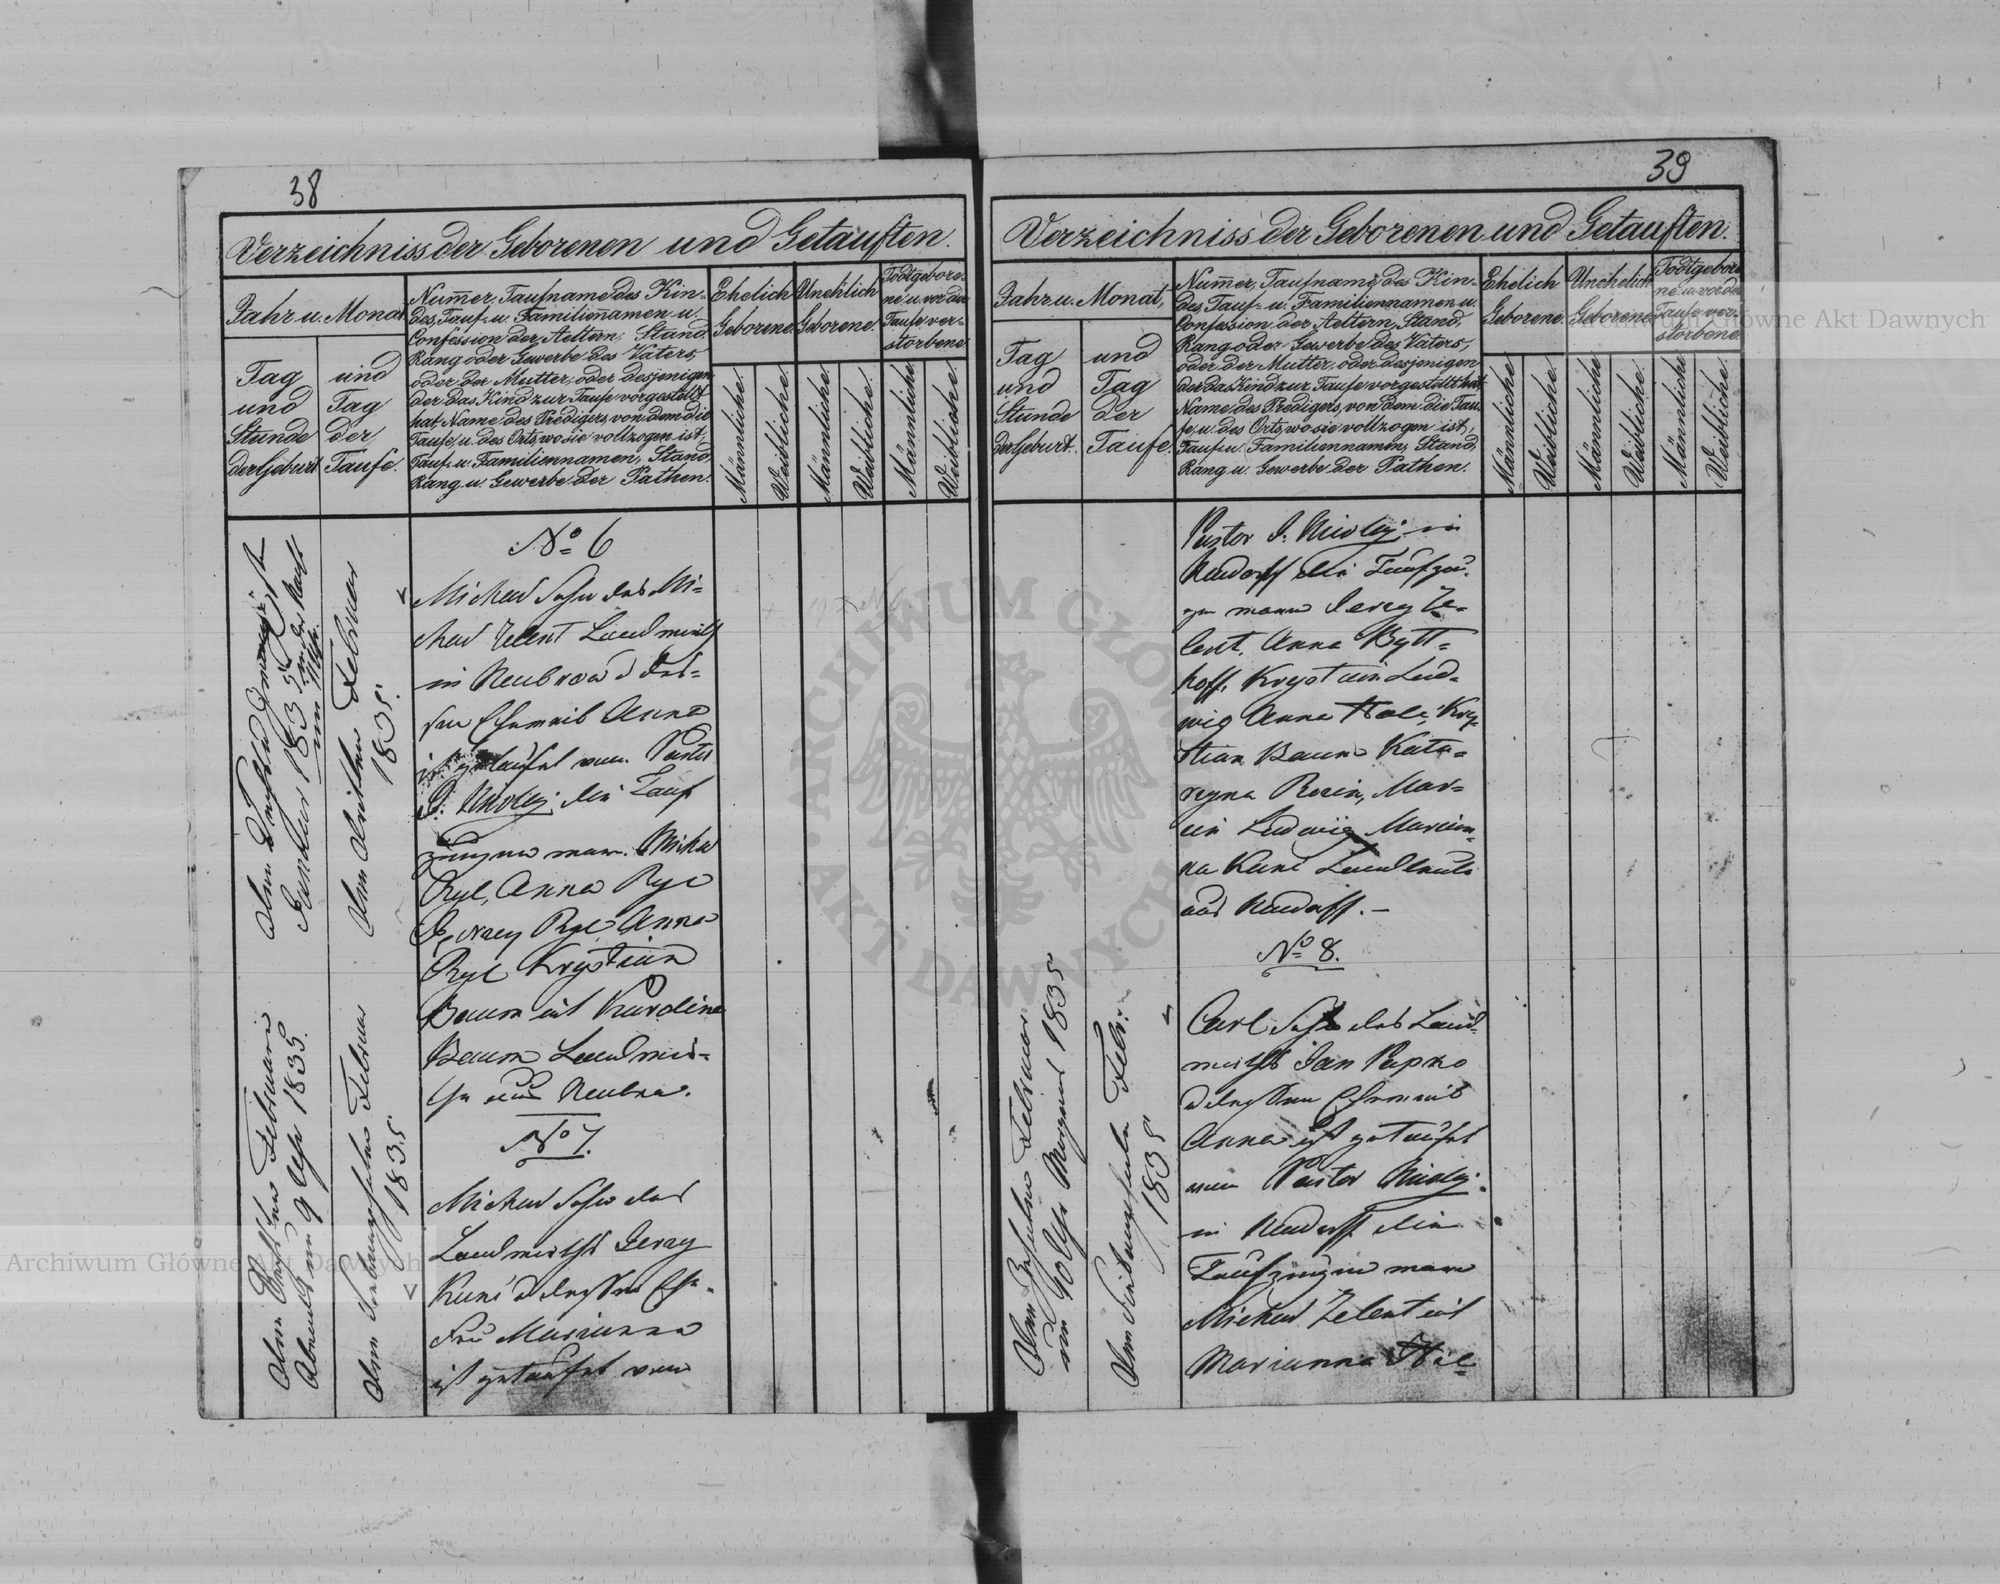 38
Verzeichniss der Geborenen und Getauften.
Jahr u. Monat
Tag
und
Stunde
der Geburt
und
Tag
der
Taufe.
Nummer, Taufname des Kin-
des, Tauf- u. Familiennamen u.
Confession der Aeltern, Stand,
Rang oder Gewerbe des Vaters,
oder der Mutter, oder desjenigen
der das Kind zur Taufe vorgestellt
hat, Name des Predigers, von dem die
Taufe, u. des Orts, wo sie vollzogen ist,
Tauf- u. Familiennamen, Stand,
Rang u. Gewerbe der Pathen.
Ehelich
Geborene.
Unehlich
Geborene.
Todtgebore-
ne u. vor der
Taufe ver-
storbene
Männliche.
Weibliche.
Männliche.
Weibliche.
Männliche.
Weibliche.
Januar 1835
Am dritten Februar
1835.
No 6
Michael Sohn des Mi-
chael Zelent Landwirth
in Neubrow d des-
sen Eheweib Anna
ist getaufet vom Pastor
J. Nicolaj die Tauf
zeugen waren Michael
Ryl, Anna Ryl
Ryl Anna
Ryl Krystian
Baum und Karolina
Baum Landwir-
the aus Neubro.
Am Februari
Abends um 9 Uhr 1835.
Am Februar
1835
No 7.
Michael Sohn des
Landwirths Jerzy
dessen Ehe-
frau Marianna
ist getaufet vom
39
Verzeichniss der Geborenen und Getauften.
Jahr u. Monat,
Tag
und
Stunde
der Geburt.
und
Tag
der
Taufe.
Nummer, Taufname des Kin-
des, Tauf- u. Familiennamen u.
Confession der Aeltern, Stand,
Rang oder Gewerbe des Vaters,
oder der Mutter, oder desjenigen
der das Kind zur Taufe vorgestellt hat
Name des Predigers, von dem die Tau-
fe, u. des Orts, wo sie vollzogen ist,
Tauf- u. Familiennamen, Stand,
Rang u. Gewerbe der Pathen.
Ehelich
Geborene.
Unehelich
Geborene
Todtgebore-
ne u. vor der
Taufe ver-
storbene.
Männliche
Weibliche.
Männliche
Weibliche.
Männliche
Weibliche.
Pastor J. Nicolaj in
Neudorff die Taufzeu-
gen waren Jerzy Ze-
lent, Anna Bytt-
hoff, Krystian Lud-
wig Anna Kry-
stian Baum Kata-
rzyna Mar-
cin Ludwig Marian-
na Landleute
aus Neudorff. –
Am Februar
um 10 Uhr Morgens 1835
Am Febr:
1835
No 8.
Carl Sohn des Land-
wirths Jan Papko
dessen Eheweib
Anna ist getaufet
vom Pastor Nicolaj
in Neudorff die
Taufzeugen waren
Michael Zelent und
Marianna
Archiwum Główne Akt Dawnych
Archiwum Główne Akt Dawnych
ARCHIWUM GŁÓWNE AKT DAWNYCH